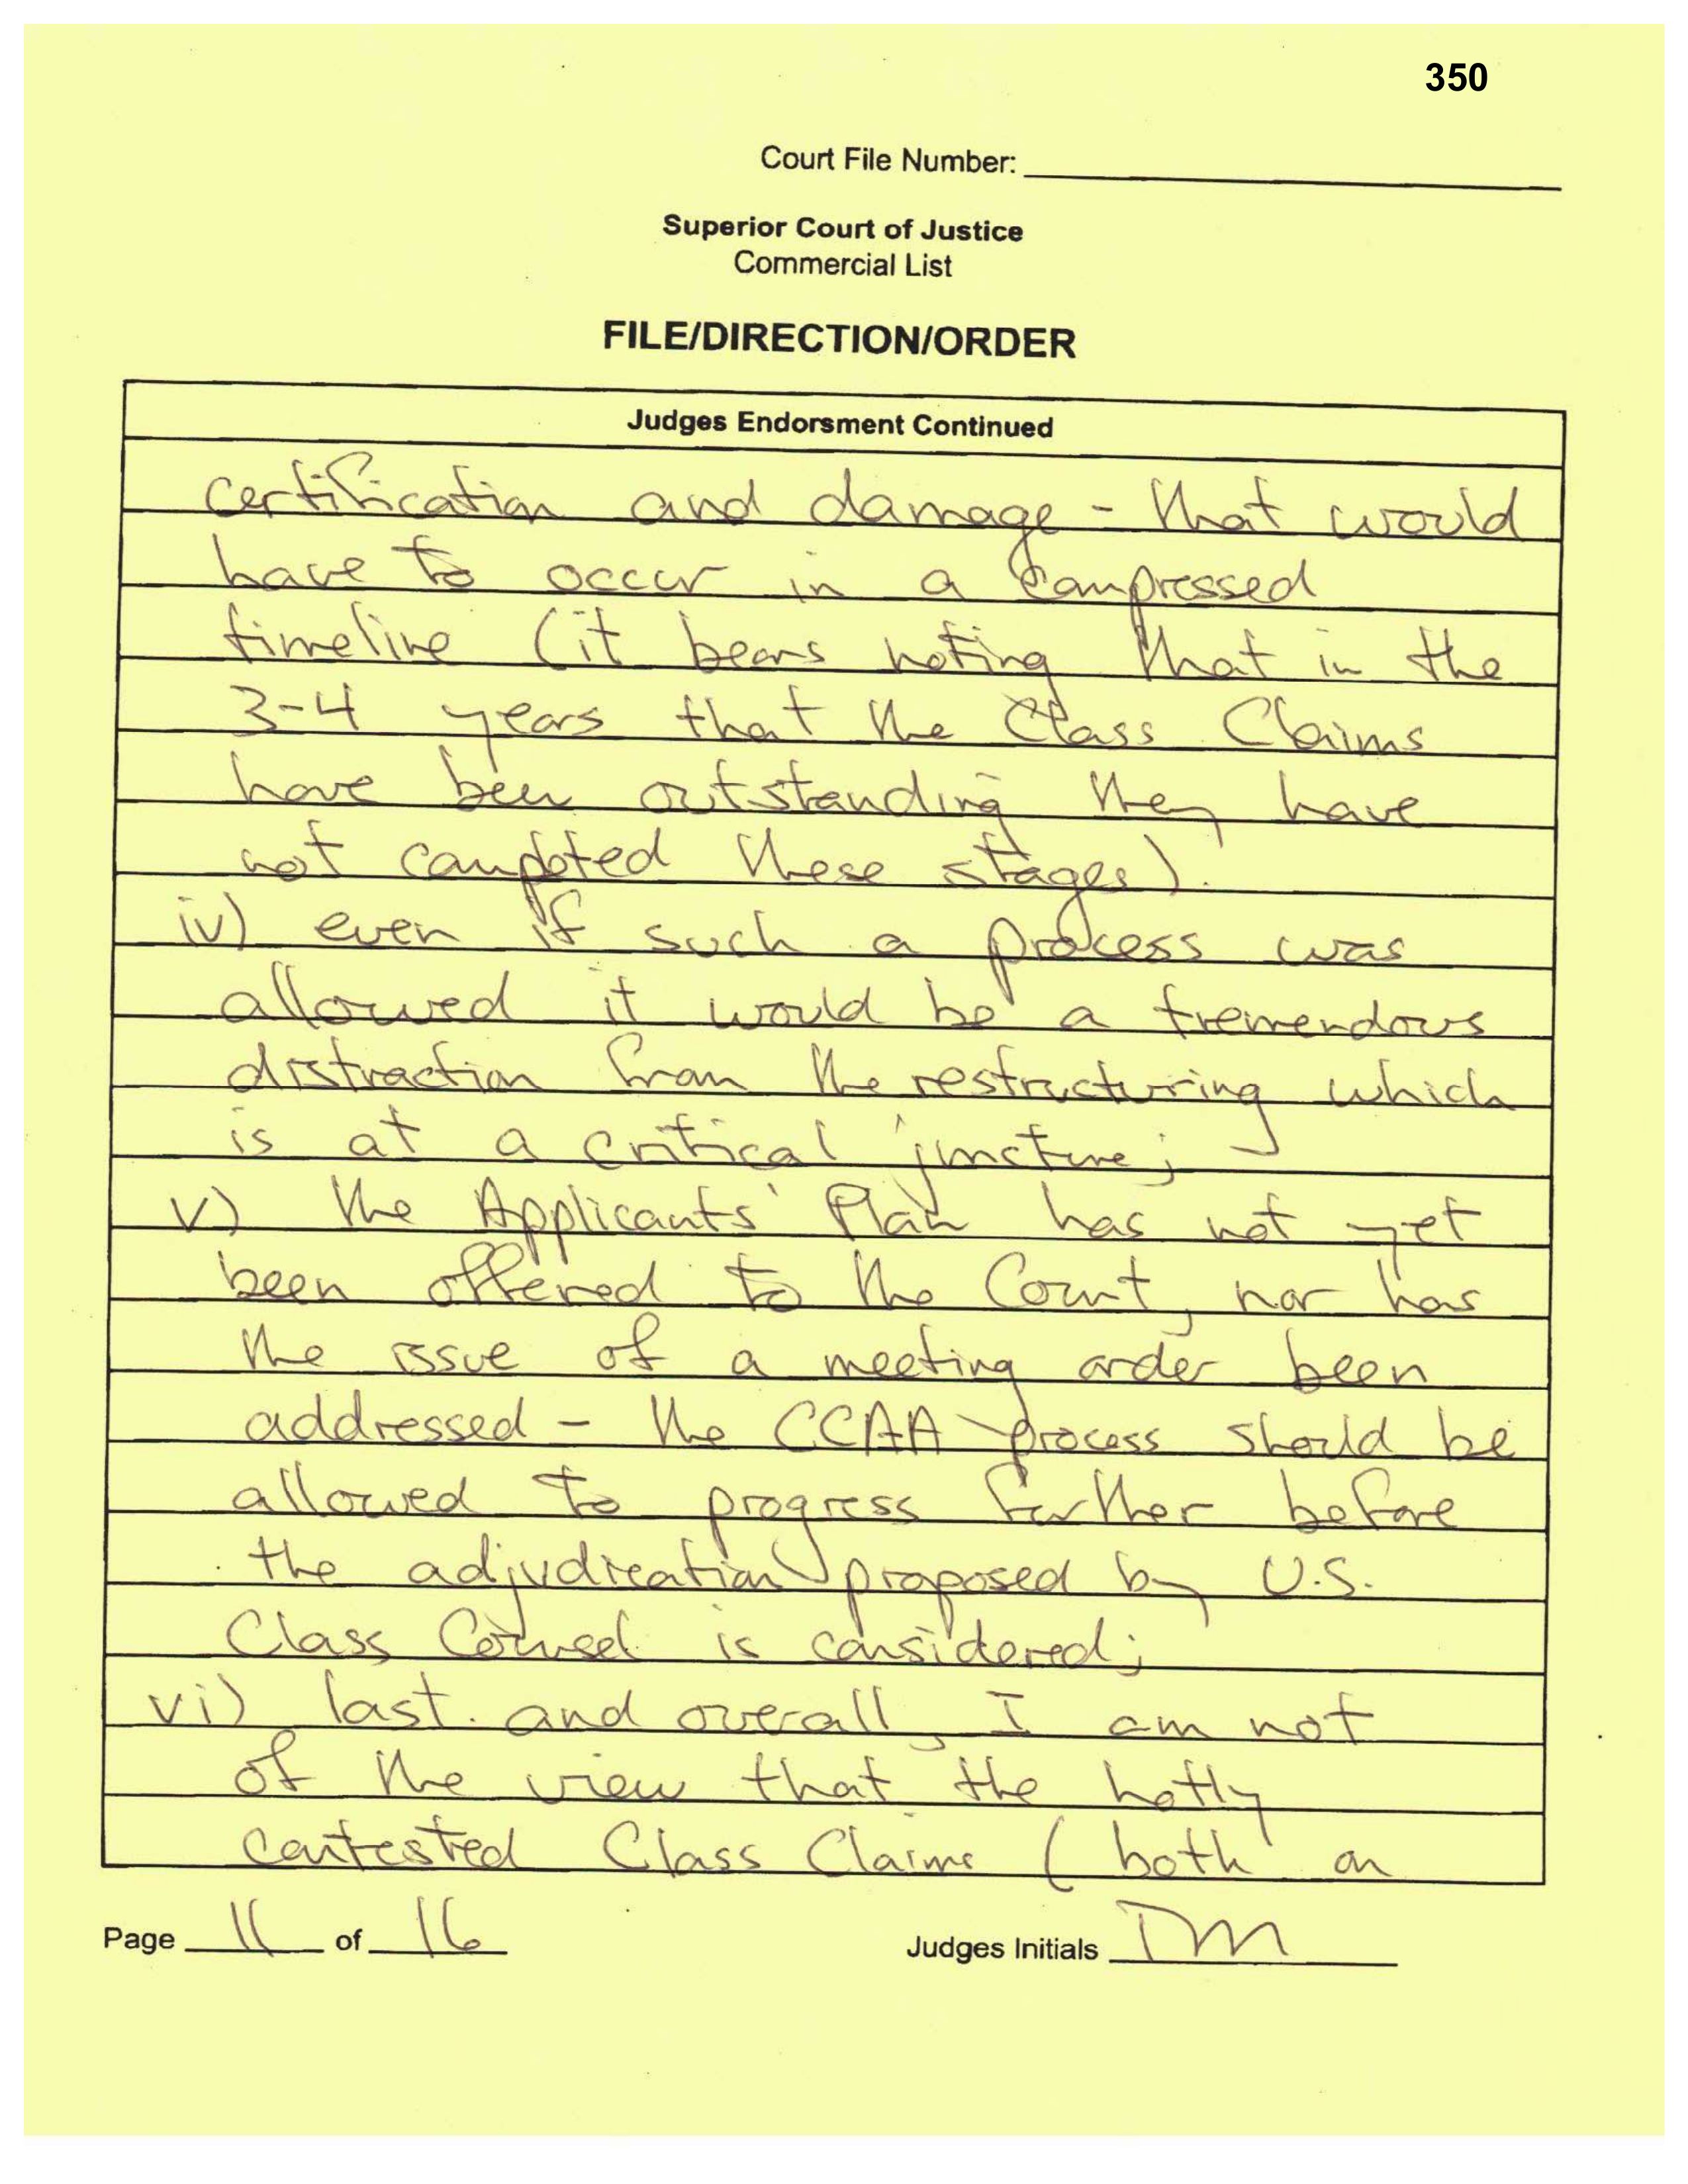 350
Court File Number:
Superior Court of Justice
Commercial List
FILE/DIRECTION/ORDER
Judges Endorsment Continued
certification and damage - that would
have to occur in a compressed
timeline (it bears noting that in the
3-4 years that the Class Claims
have been outstanding they have
not completed these stages).
iv) even if such a process was
allowed it would be a tremendous
distraction from the restructuring which
is at a critical juncture;
v) the Applicants' Plan has not yet
been offered to the Court, nor has
the issue of a meeting order been
addressed - the CCAA process should be
allowed to progress further before
the adjudication proposed by U.S.
Class Counsel is considered;
vi) last and overall, I am not
of the view that the hotly
contested Class Claims (both on
Page 11 of 16
Judges Initials DM